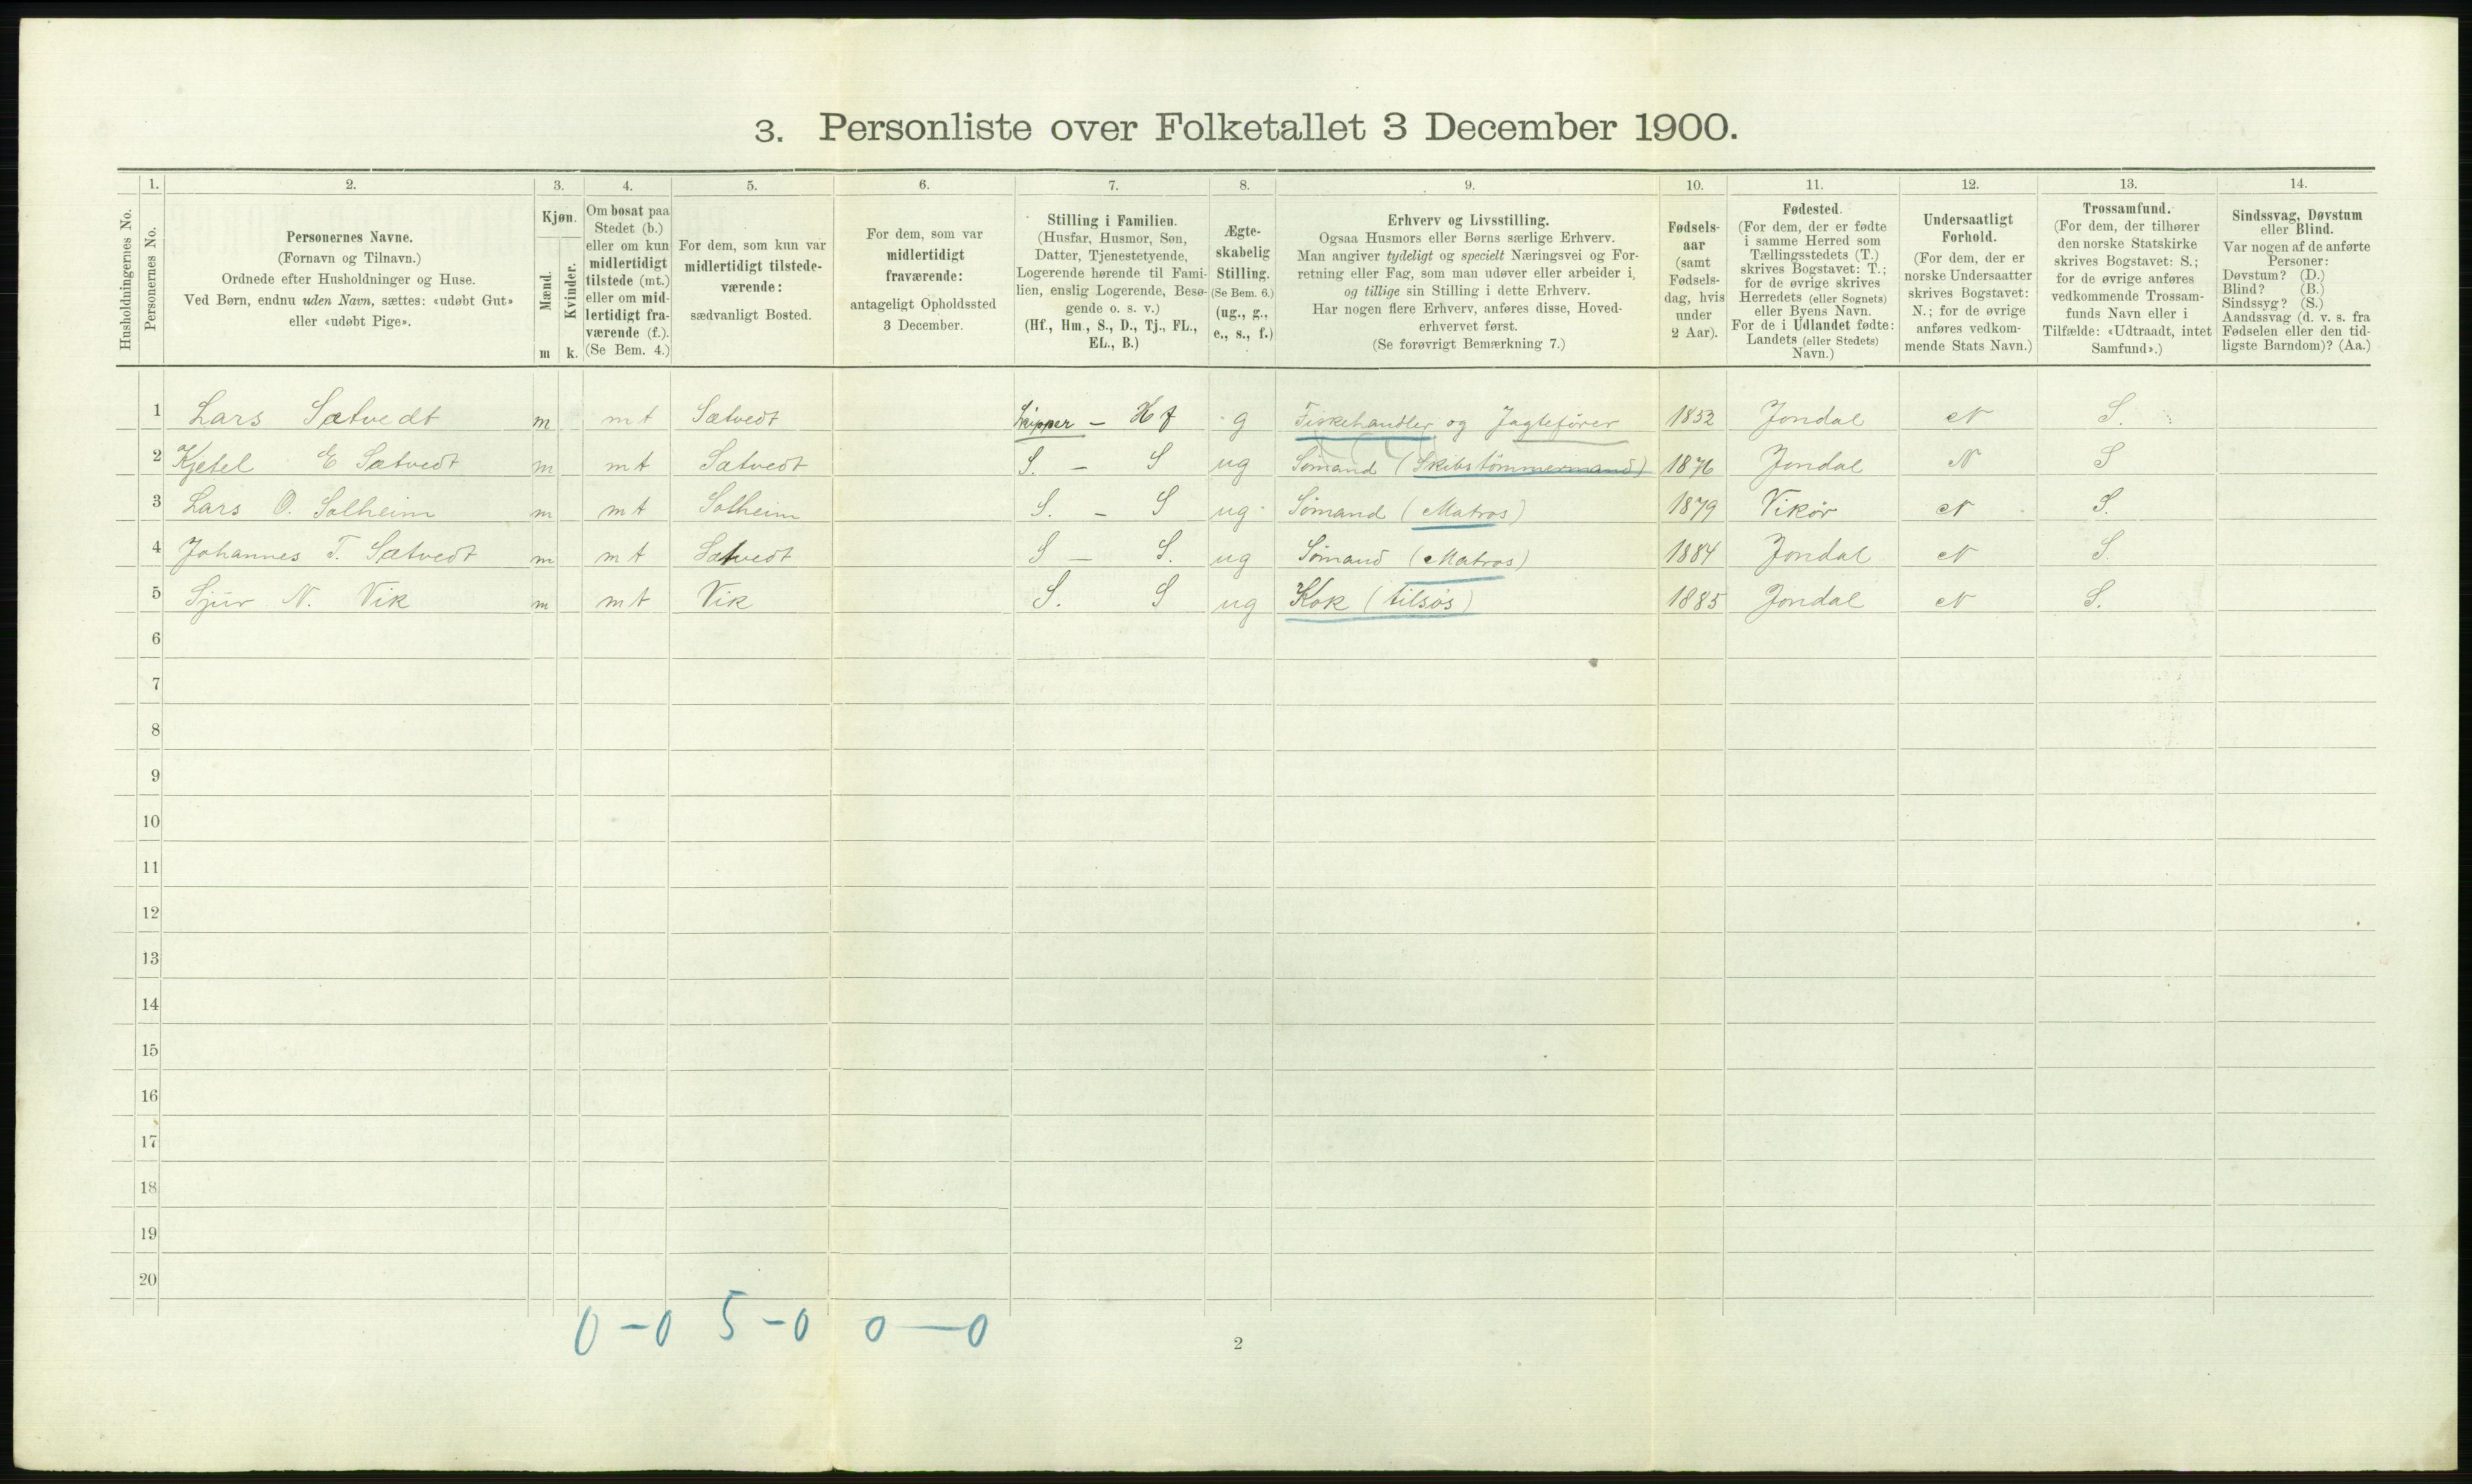 3. Personliste over Folketallet 3 December 1900.
1. 2. 3. 4. 5. 6. 7. 8. 9. 10. 11. 12. 13. 14.
Husholdningernes No.
Personernes No.
Personernes Navne.
(Fornavn og Tilnavn.)
Ordnede efter Husholdninger og Huse.
Ved Børn, endnu uden Navn, sættes: «udøbt Gut»
eller «udøbt Pige».
Kjøn.
Mænd.
Kvinder.
m k.
Om bosat paa
Stedet (b.)
eller om kun
midlertidigt
tilstede (mt.)
eller om mid-
lertidigt fra-
værende (f.).
(Se Bem. 4.)
For dem, som kun var
midlertidigt tilstede-
værende:
sædvanligt Bosted.
For dem, som var
midlertidigt
fraværende:
antageligt Opholdssted
3 December.
Stilling i Familien.
(Husfar, Husmor, Søn,
Datter, Tjenestetyende,
Logerende hørende til Fami-
lien, enslig Logerende, Besø-
gende o. s. v.)
(Hf., Hm., S., D., Tj., FL.,
EL., B.)
Ægte-
skabelig
Stilling.
(Se Bem. 6.)
(ug., g.,
e., s., f.)
Erhverv og Livsstilling.
Ogsaa Husmors eller Børns særlige Erhverv.
Man angiver tydeligt og specielt Næringsvei og For-
retning eller Fag, som man udøver eller arbeider i,
og tillige sin Stilling i dette Erhverv.
Har nogen flere Erhverv, anføres disse, Hoved-
erhvervet først.
(Se forøvrigt Bemærkning 7.)
Fødsels-
aar
(samt
Fødsels-
dag, hvis
under
2 Aar).
Fødested.
(For dem, der er fødte
i samme Herred som
Tællingsstedets (T.)
skrives Bogstavet: T.;
for de øvrige skrives
Herredets (eller Sognets)
eller Byens Navn.
For de i Udlandet fødte:
Landets (eller Stedets)
Navn.)
Undersaatligt
Forhold.
(For dem, der er
norske Undersaatter
skrives Bogstavet:
N.; for de øvrige
anføres vedkom-
mende Stats Navn.)
Trossamfund.
(For dem, der tilhører
den norske Statskirke
skrives Bogstavet: S.;
for de øvrige anføres
vedkommende Trossam-
funds Navn eller i
Tilfælde: «Udtraadt, intet
Samfund».)
Sindssvag, Døvstum
eller Blind.
Var nogen af de anførte
Personer:
Døvstum? (D.)
Blind? (B.)
Sindssyg? (S.)
Aandssvag (d. v. s. fra
Fødselen eller den tid-
ligste Barndom)? (Aa.)
1 Lars Sætvedt m mt Sætvedt Skipper – Hf g Fiskehandler og Jagtefører 1853 Jondal N S.
2 Kjetel E Sætvedt m mt Sætvedt S. – S ug Sømand (Skibstømmermand) 1876 Jondal N S
3 Lars O. Solheim m mt Solheim S. – S ug Sømand (Matros) 1879 Vikør N S.
4 Johannes T. Sætvedt m mt Sætvedt S – S. ug Sømand (Matros) 1884 Jondal N S.
5 Sjur N. Vik m mt Vik S. S ug Kok (tilsøs) 1885 Jondal N S.
6
7
8
9
10
11
12
13
14
15
16
17
18
19
20
0 – 0 5 – 0 0 – 0
2